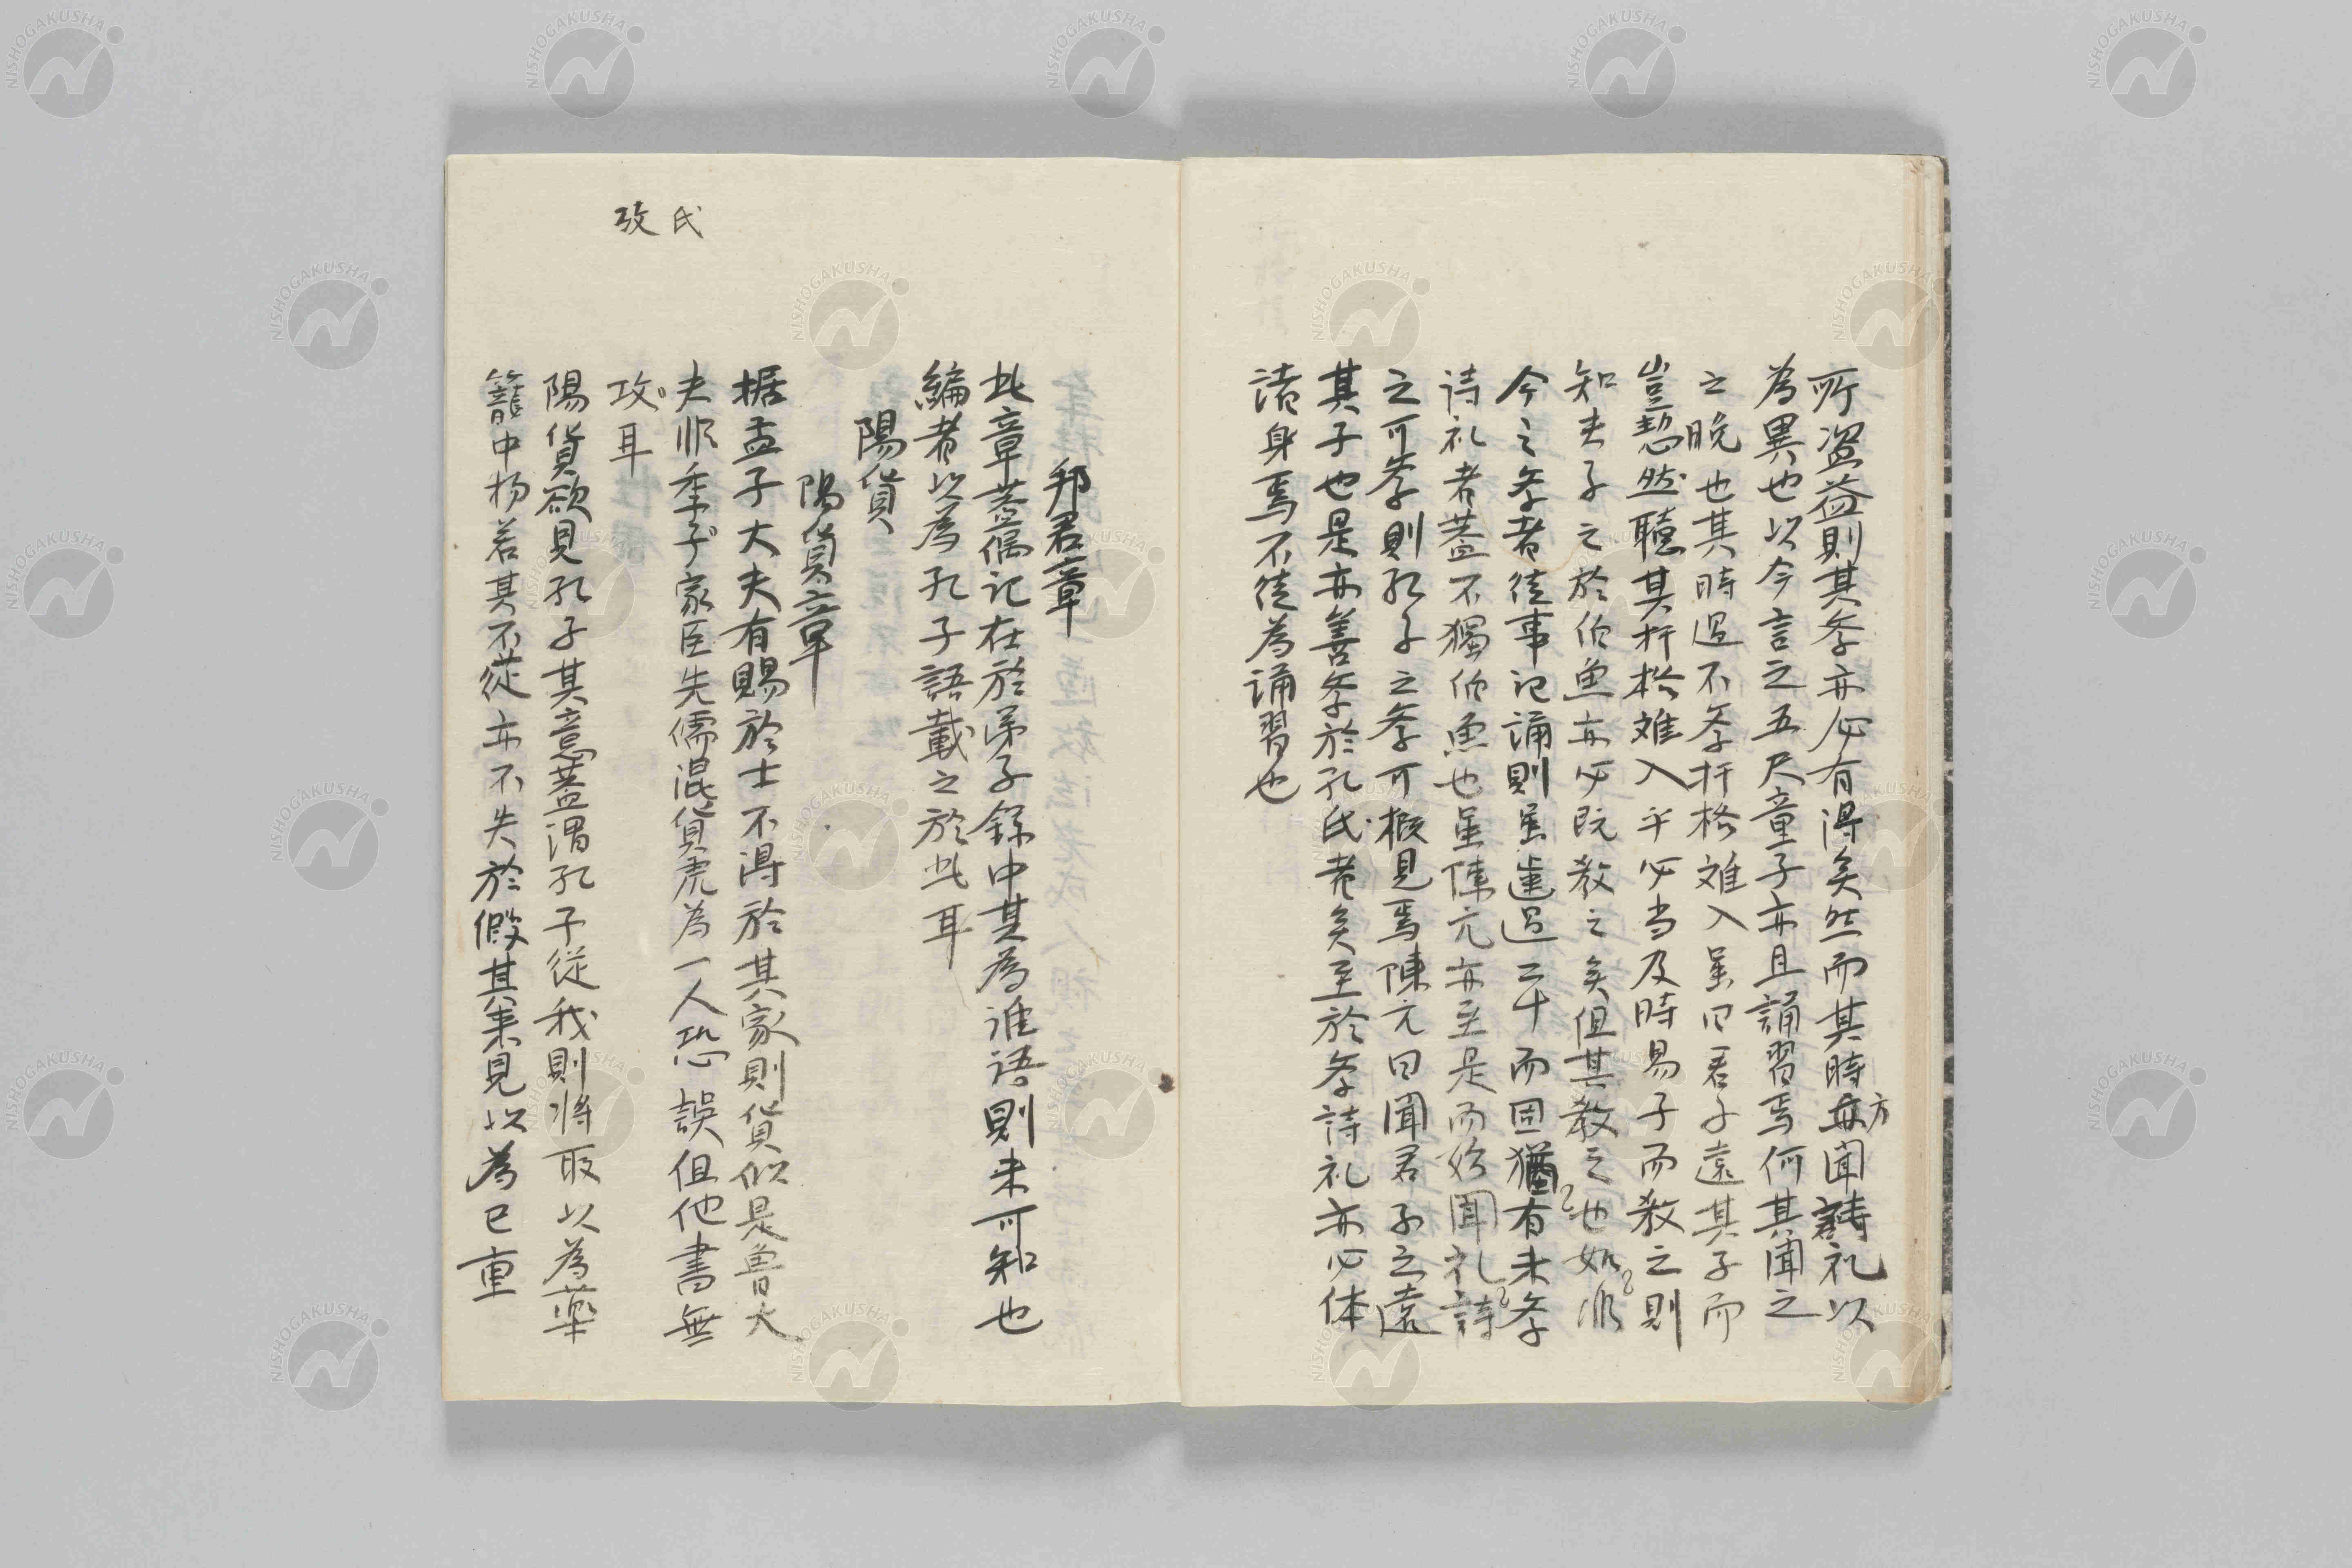 所盗益則其斈亦必有得矣然而其時方聞詩礼以
為異也以今言之五尺童子亦且誦習焉何其聞之
之晩也其時過不斈扞格难入虽曰君子遠其子而
豈恝然聽其扞格难入乎必当及時易子而教之則
知夫子之於伯魚亦必既教之矣但其教之也如
今之斈者徒事記誦則虽歯過二十而固猶有未斈
诗礼者蓋不獨伯魚也虽陳亢亦至是而始聞礼詩
之可斈則孔子之斈可概見焉陳亢曰聞君子之遠
其子也是亦善斈於孔氏者矣至於斈詩礼亦必体
諸身焉不徒為誦習也
邦君章
此章蓋偶记在於弟子録中其為誰语則未可知也
編者以為孔子語載之於此耳
陽貨
陽貨章
据孟子大夫有賜於士不得於其家則貨似是魯大
夫非季子家臣先儒混貨虎為一人恐誤但他書無
攷耳
陽貨欲見孔子其意蓋謂孔子從我則将取以為薬
籠中物若其不從亦不失於假其来見以為已重
氏
攷